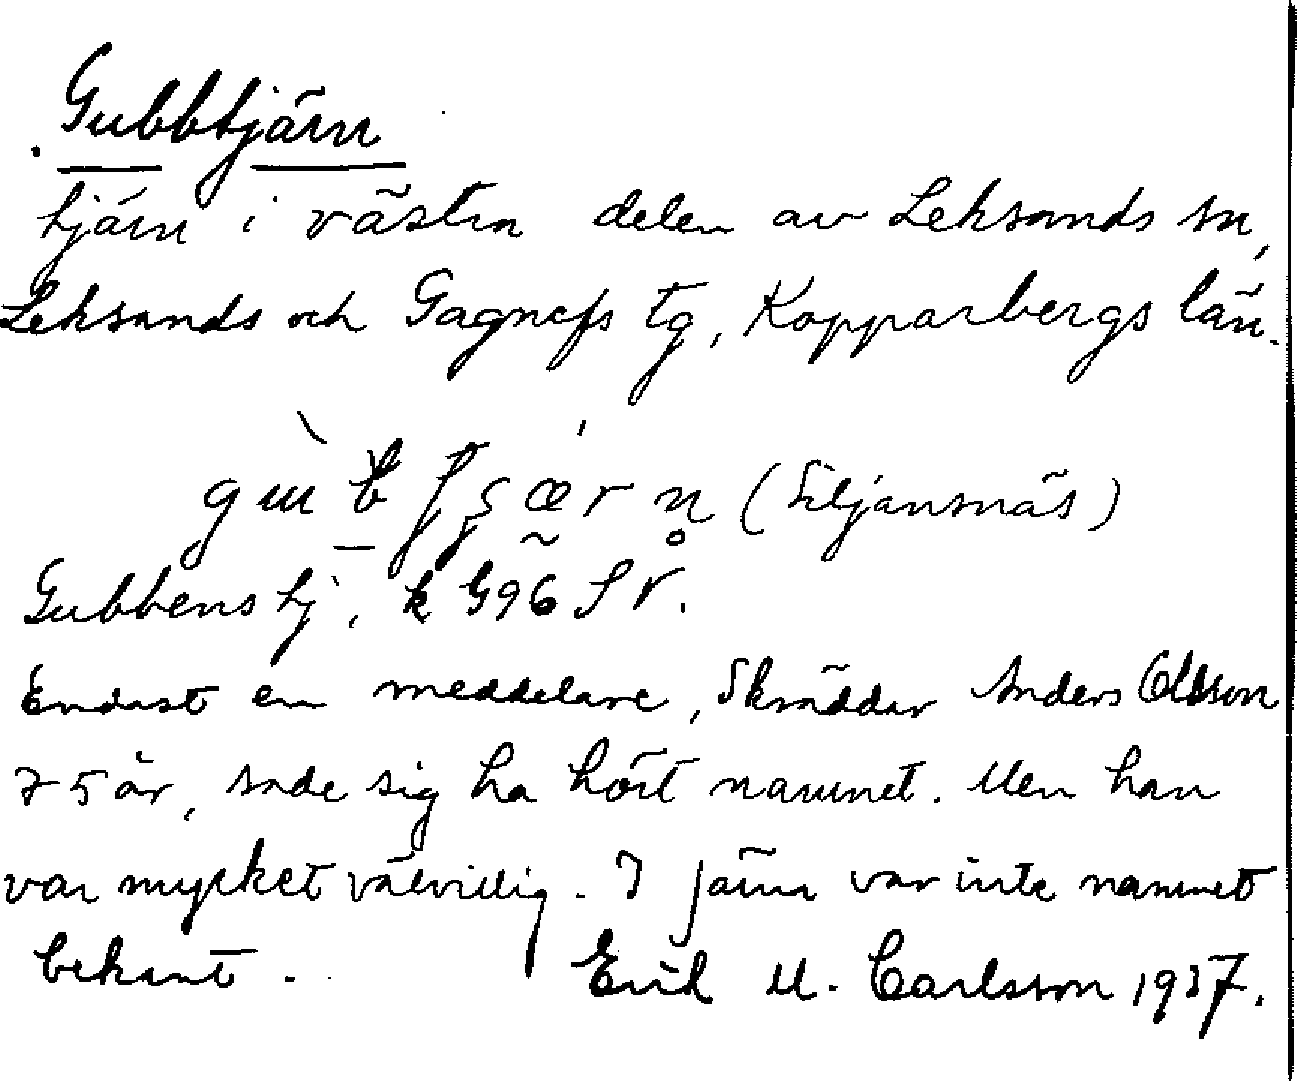 Gubbtjärn
tjärn i västra delen av Leksands sn,
Leksands och Gagnefs tg, Kopparbergs län.
(Siljansnäs)
Gubbens tj, k G96 SV.
Endast en meddelare, Skräddar Anders Olsson
75 år, sade sig ha hört namnet. Men han
var mycket välvillig. I Järna var inte namnet
bekant. Erik M. Carlsson 1937.